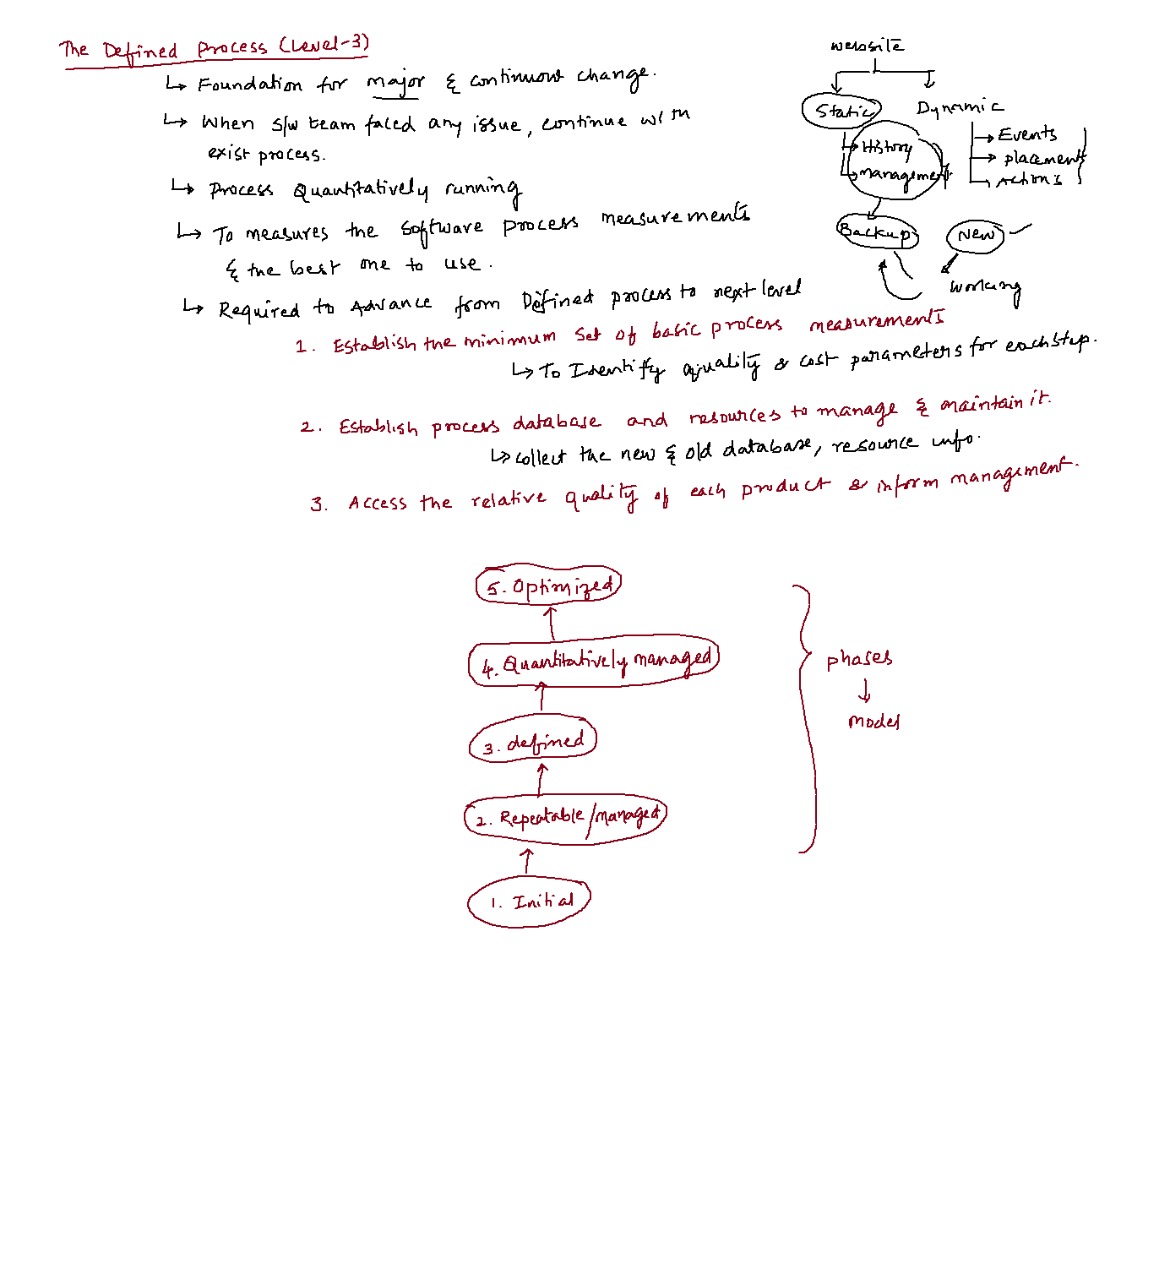 The Defined Process (Level-3)
↳ Foundation for major & continuous change.
↳ When s/w team faced any issue, continue with
exist process.
↳ Process Quantitatively running
↳ To measures the software process measurements
& the best one to use.
↳ Required to Advance from Defined process to next level
1. Establish the minimum set of basic process measurements
↳ To Identify quality & cost parameters for each step.
2. Establish process database and resources to manage & maintain it.
↳ collect the new & old database, resource info.
3. Access the relative quality of each product & inform management.
website
Static
Dynamic
→ History
→ management
→ Events
→ placements
→ Actions
Backup
New
working
5. Optimized
4. Quantitatively managed
3. defined
2. Repeatable/managed
1. Initial
phases
↓
model